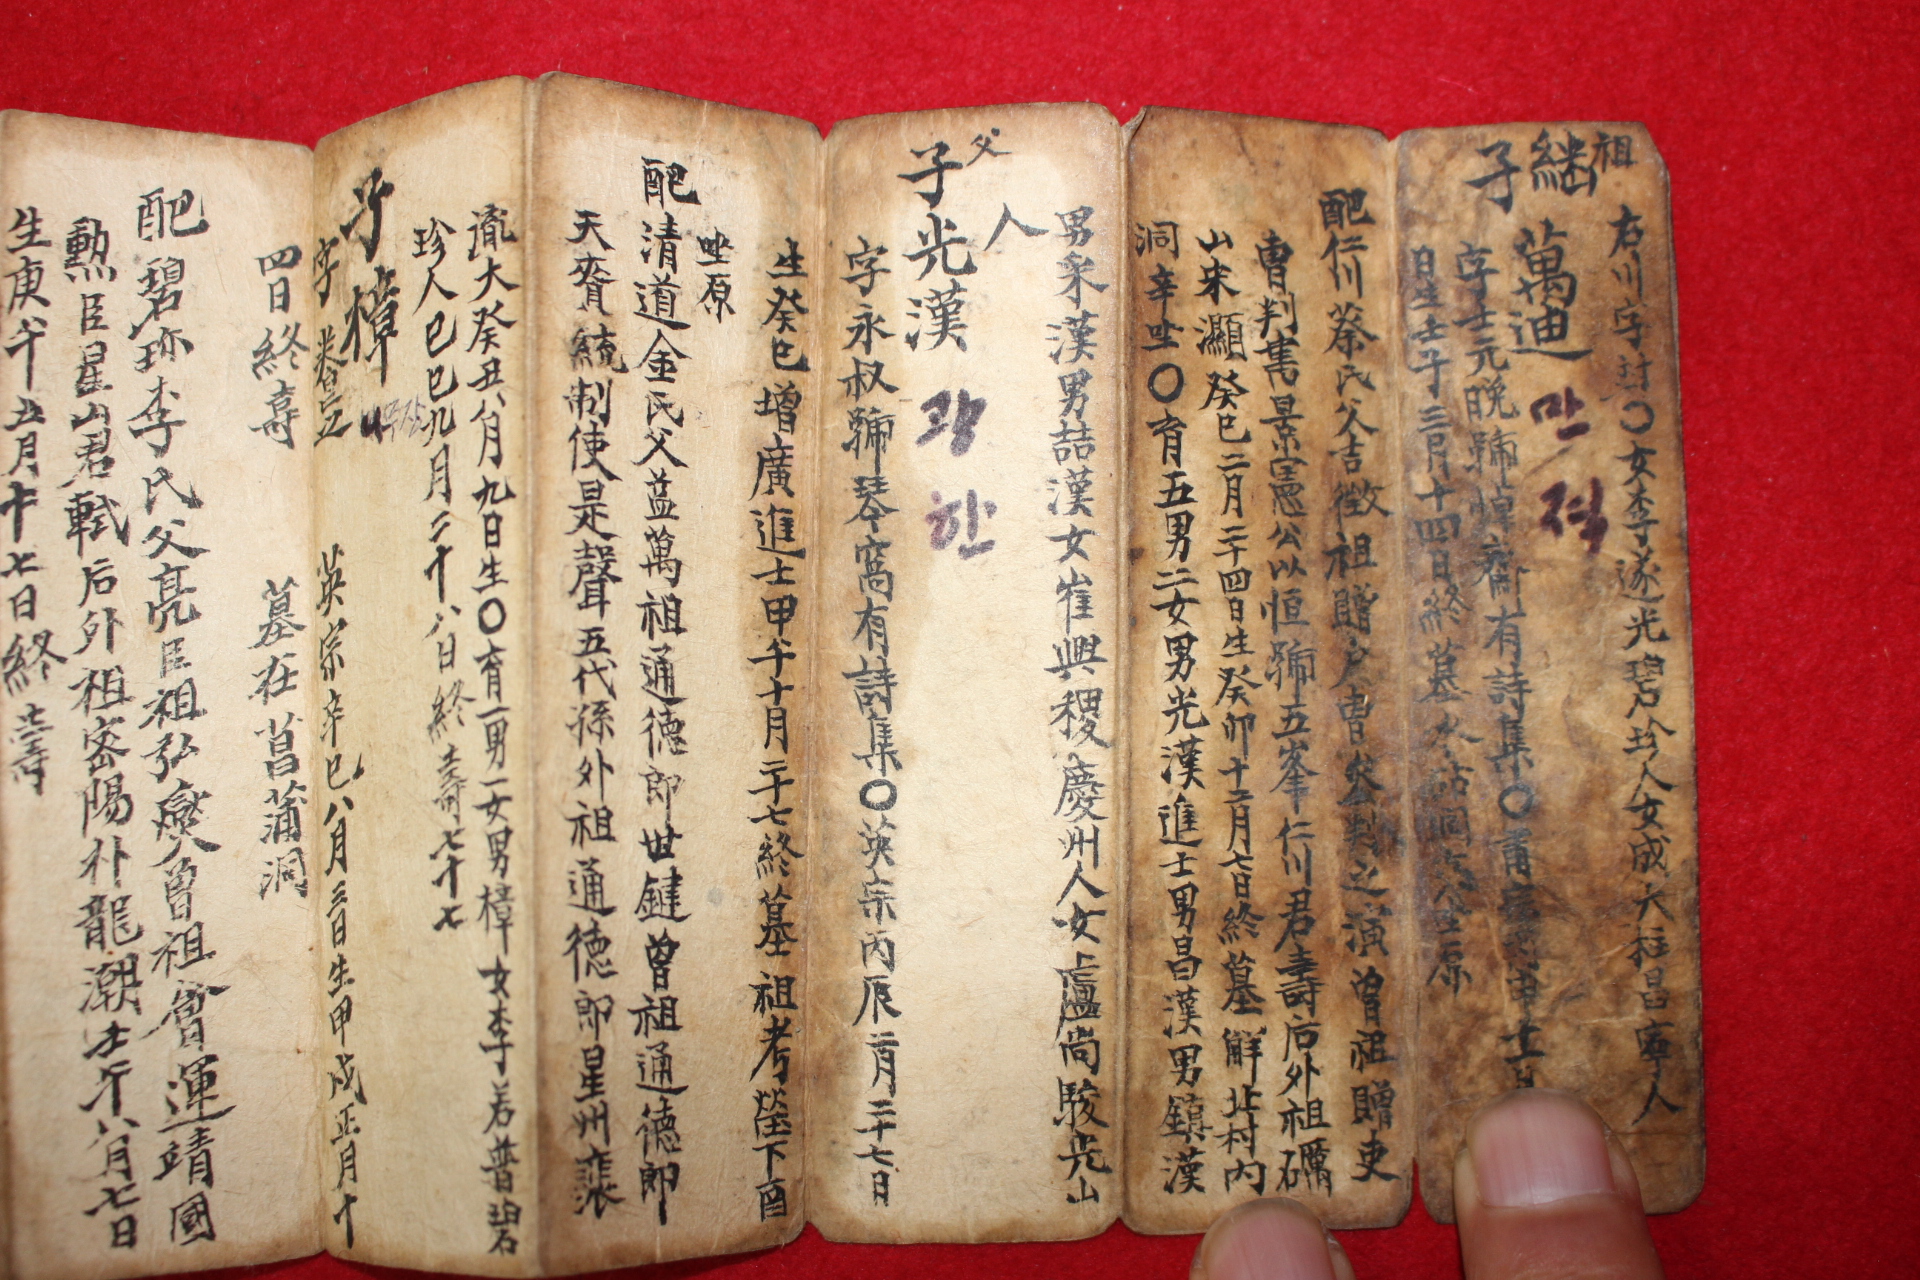 祖
右川字 〇女李遂光碧珍人女成大柱昌寧人
繼
子 萬迪 만적
字士元晩號 齋有詩集〇
日生壬子三月十四日終墓 洞 坐原
配仁川蔡氏父吉徵祖贈戶曺參判之演曾祖贈吏
曺判書景憲公以恒號五峯仁川君壽后外祖礪
山宋灝癸巳二月二十四日生癸卯十二月七日終墓解北村內
洞辛坐〇育五男二女男光漢進士男昌漢男鎮漢
男采漢男喆漢女崔興稷慶州人女盧尙駿光山
人
父
子光漢 광한
字永叔號琴窩有詩集〇英宗丙辰二月二十七日
生癸巳增廣進士甲午十月二十七終墓祖考塋下酉
坐原
配清道金氏父益萬祖通德郎世鍵曾祖通德郎
天賚統制使是聲五代孫外祖通德郎星州裴
胤大癸丑八月九日生〇育一男一女男樟女李若普碧
珍人己巳九月二十八日終壽七十七
子樟
字 英宗辛巳八月三日生甲戌正月十
四日終壽 墓在菖蒲洞
配碧珍李氏父亮臣祖弘燮曾祖 運靖國
勳臣星山君軾后外祖密陽朴龍潮壬午八月七日
生庚午五月十七日終壽